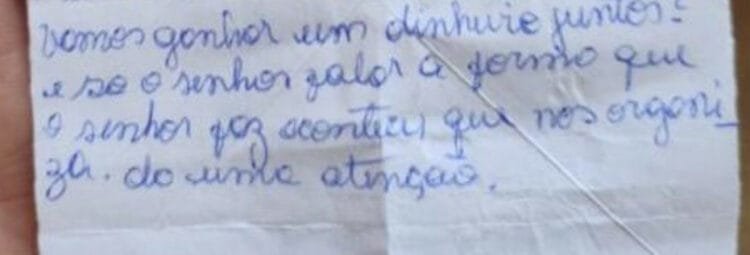 vamos ganhar um dinheiro juntos:
e so o senhor falar a forma que
o senhor faz acontecer que nos organi_
za. da uma atenção.